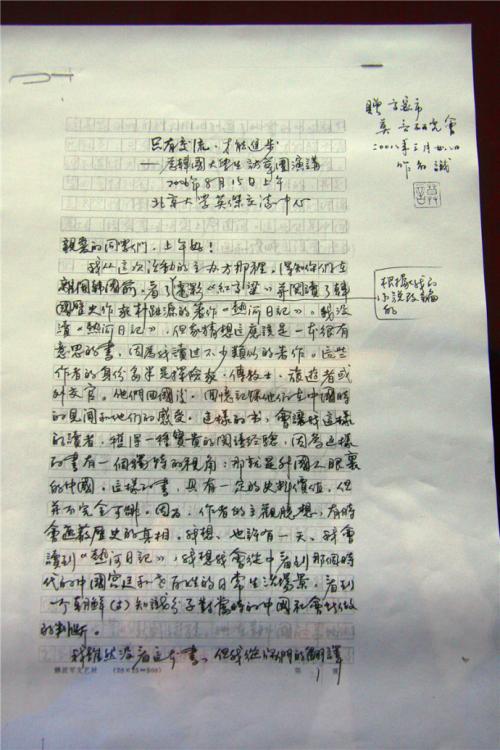 只有交流,才能進步
韓國大學生訪華團演講
8月15日上午
北京大学英傑交流中心
贈高密市
莫言研究會
作者識
親愛的同學們,上午好!
我从這次活動的主办方那裡,得知你們在
韓国前,看了電影《紅高粱》並閱讀了韓
國歷史作家朴趾源的著作《熱河日記》。我沒
讀《熱河日記》,但我猜想這應該是一本很有
意思的書,因為我讀过不少類似的著作。這些
作者的身份多半是探險家、傳教士、旅遊者或
外交官。他們回國後,回憶記錄他们在中國時
的見聞和他們的感受。這樣的书,會讓我這樣
的讀者,獲得一種寶貴的閱讀經驗,因為這樣
的書有一個獨特的視角:那就是外國人眼裏
的中國。這樣的書,具有一定的史料價值,但
並不完全可靠。因为,作者的主觀臆想,有時
會遮蔽歷史的真相。我想,也許有一天,我會
讀到《熱河日記》,我想我會從中看到那個時
代的中國宮廷和老百姓的日常生活場景,看到
一个朝鮮知識分子對當時的中國社會所做
的判斷。
我雖然沒看这本書,但我從你們的翻譯
根據我的
小說改編
的
解放军文艺社 (20×25=500) 第 頁